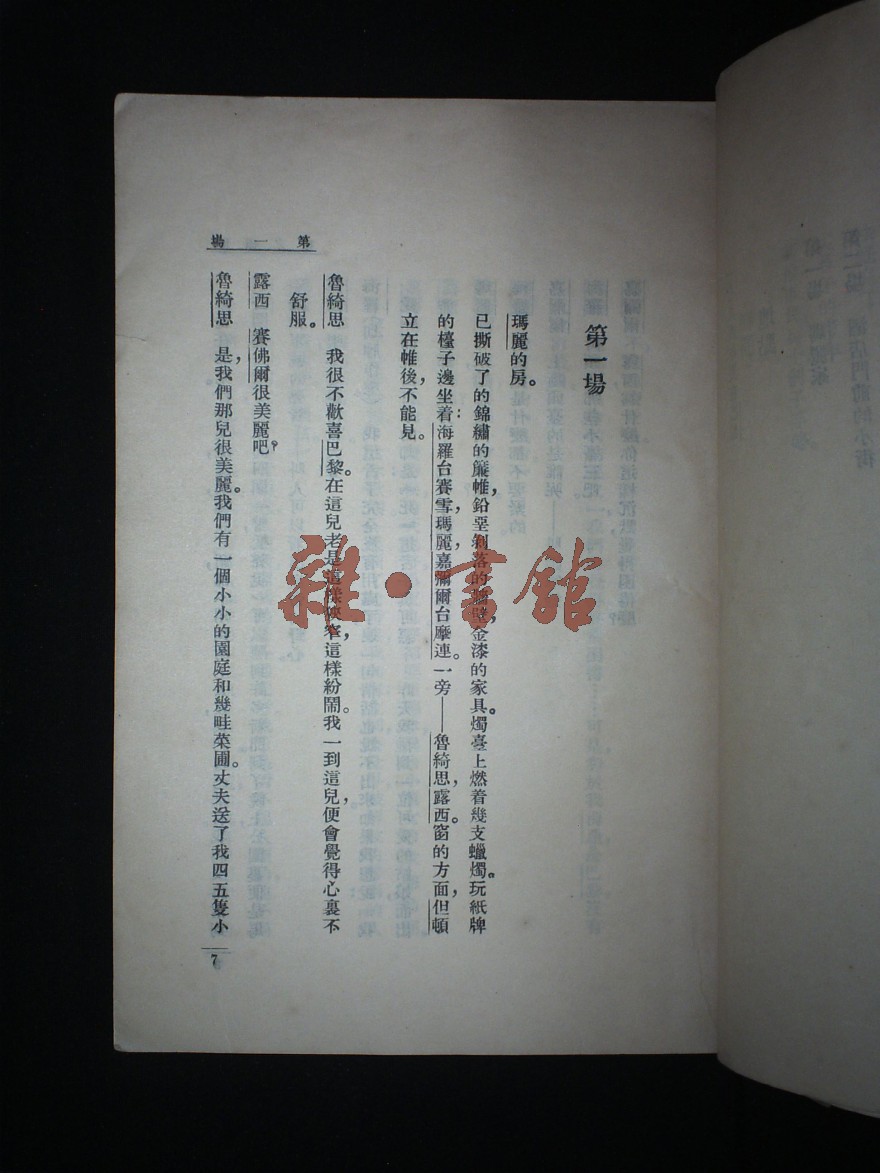 第一場
瑪麗的房。
已撕破了的錦繡的簾帷，鉛堊剝落的牆壁，金漆的家具。燭臺上燃着幾支蠟燭。玩紙牌
的檯子邊坐着：海羅台賽雪，瑪麗，嘉彌爾台摩連。一旁——魯綺思，露西。窗的方面，但頓
立在帷後不能見。
魯綺思　我很不歡喜巴黎。在這兒老是這樣狹窄，這樣紛鬧。我一到這兒，便會覺得心裏不
舒服。
露西　賽佛爾很美麗吧？
魯綺思　是，我們那兒很美麗。我們有一個小小的園庭和幾畦菜圃。丈夫送了我四五隻小
第一場
7
雜·書館